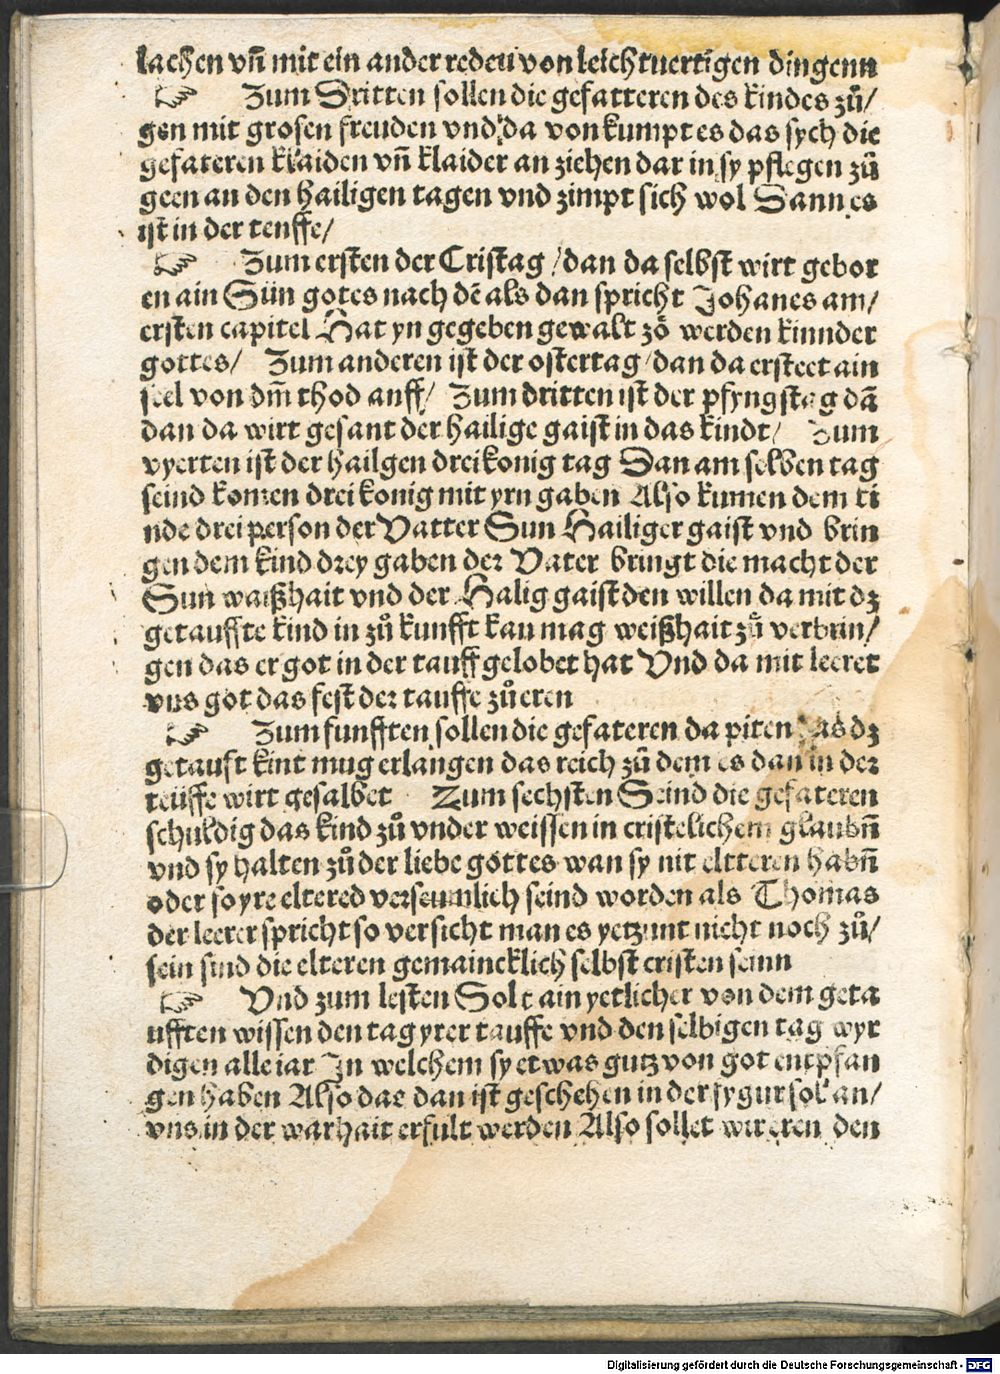 lachen vñ mit ein ander reden von leichtuertigen dingenn
☞ Zum Dritten sollen die gefatteren des kindes zů/
gen mit grosen freuden vnd da von kumpt es das sych die
gefateren klaiden vñ klaider an ziehen dar in sy pflegen zů
geen an den hailigen tagen vnd zimpt sich wol Dann es
ist in der tenffe/
☞ Zum ersten der Cristag/dan da selbst wirt gebor
en ain Sün gotes nach dē als dan spricht Johanes am/
ersten capitel Hat yn gegeben gewalt zů werden kinnder
gottes/ Zum anderen ist der ostertag/dan da ersteet ain
seel von dm̄ thod auff/ Zum dritten ist der pfyngstag dā
dan da wirt gesant der hailige gaist in das kindt/ Zum
vyerten ist der hailgen drei konig tag Dan am selben tag
seind komen drei konig mit yrn gaben Also kumen dem ki
nde drei person der Vatter Sun Hailiger gaist vnd brin
gen dem kind drey gaben der Vater bringt die macht der
Sun waißhait vnd der Halig gaist den willen da mit dz
getauffte kind in zů kunfft kan mag weißhait zů verbrin/
gen das er got in der tauff gelobet hat Vnd da mit leeret
vns got das fest der tauffe zů eren
☞ Zum funfften sollen die gefateren da piten das dz
getauft kint mug erlangen das reich zů dem es dan in der
teüffe wirt gesalbet Zum sechsten Seind die gefateren
schuldig das kind zů vnder weissen in cristelichem glaubñ
vnd sy halten zů der liebe gottes wan sy nit eltteren habñ
oder so yre eltered verseumlich seind worden als Thomas
der leerer spricht so versicht man es yetzunt nicht noch zů/
sein sind die elteren gemaincklich selbst cristen seinn
☞ Vnd zum lesten Solt ain yetlicher von dem geta
ufften wissen den tag yrer tauffe vnd den selbigen tag wyr
digen alle iar In welchem sy etwas gutz von got entpfan
gen haben Also das dan ist geschehen in der fygur sol an/
vns in der warhait erfult werden Also sollet wir eren den
Digitalisierung gefördert durch die Deutsche Forschungsgemeinschaft - DFG